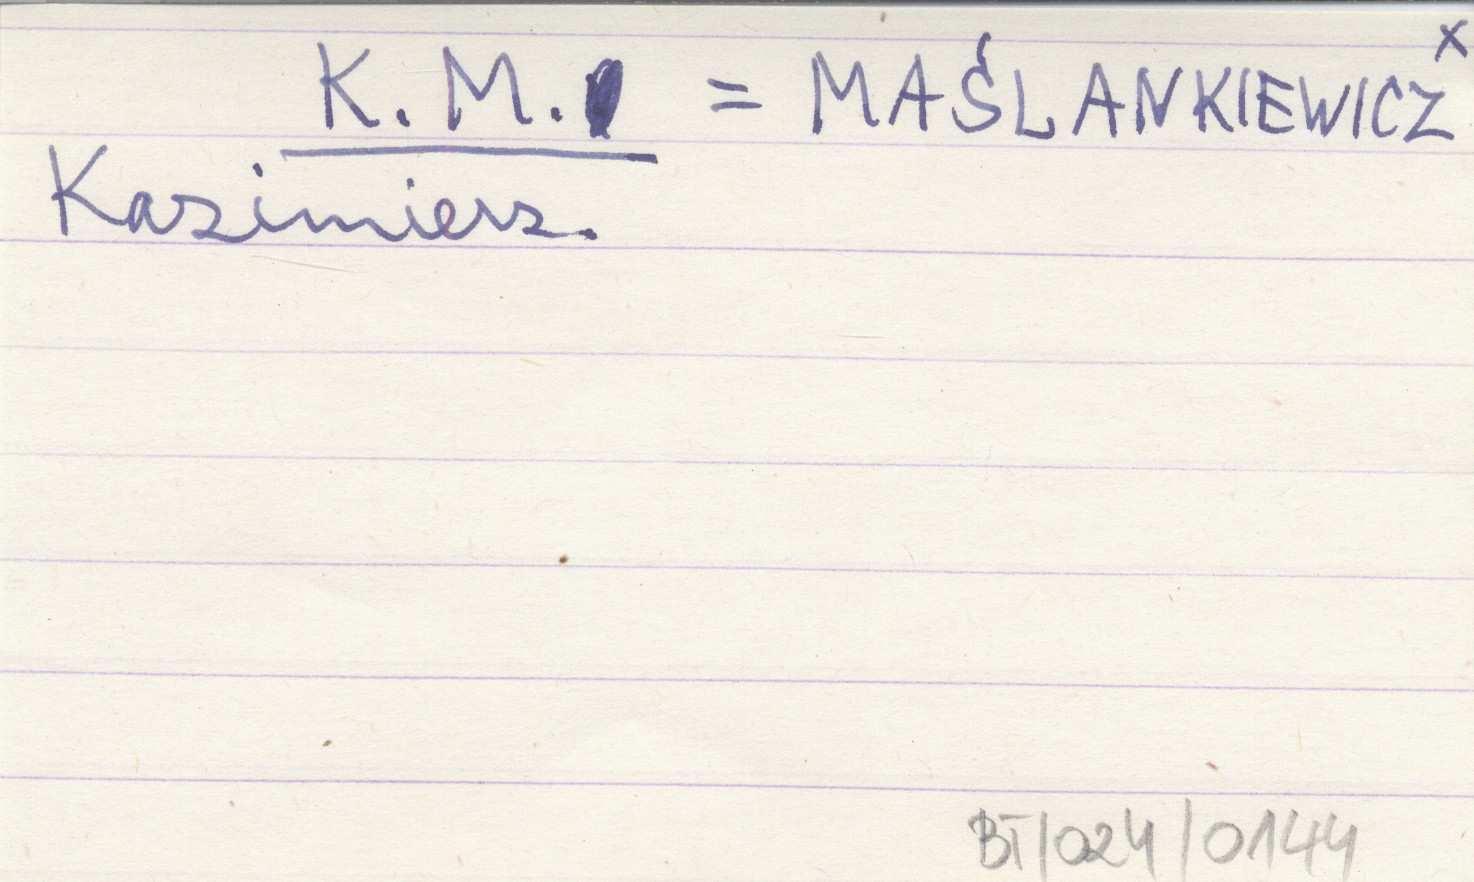 K. M. = MAŚLANKIEWICZ x
Kazimierz.
BT/024/0144